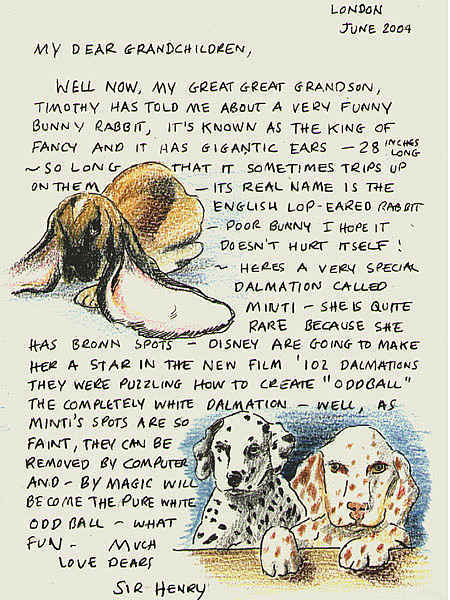 LONDON
JUNE 2004
MY DEAR GRANDCHILDREN,
WELL NOW, MY GREAT GREAT GRANDSON,
TIMOTHY HAS TOLD ME ABOUT A VERY FUNNY
BUNNY RABBIT, IT'S KNOWN AS THE KING OF
FANCY AND IT HAS GIGANTIC EARS - 28 INCHES LONG
~ SO LONG THAT IT SOMETIMES TRIPS UP
ON THEM - ITS REAL NAME IS THE
ENGLISH LOP-EARED RABBIT
- POOR BUNNY I HOPE IT
DOESN'T HURT ITSELF!
~ HERES A VERY SPECIAL
DALMATION CALLED
MINTI - SHE IS QUITE
RARE BECAUSE SHE
HAS BROWN SPOTS - DISNEY ARE GOING TO MAKE
HER A STAR IN THE NEW FILM '102 DALMATIONS
THEY WERE PUZZLING HOW TO CREATE "ODDBALL"
THE COMPLETELY WHITE DALMATION - WELL, AS
MINTI'S SPOTS ARE SO
FAINT, THEY CAN BE
REMOVED BY COMPUTER
AND - BY MAGIC WILL
BECOME THE PURE WHITE
ODD BALL - WHAT
FUN - MUCH
LOVE DEARS
SIR HENRY